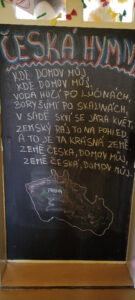 ČESKÁ HYMN
KDE DOMOV MŮJ,
KDE DOMOV MŮJ,
VODA HUČÍ PO LUČINÁCH,
BORY ŠUMÍ PO SKALINÁCH,
V SADĚ SKVÍ SE JARA KVĚT,
ZEMSKÝ RÁJ TO NA POHLED
A TO JE TA KRÁSNÁ ZEMĚ,
ZEMĚ ČESKÁ, DOMOV MŮJ,
ZEMĚ ČESKÁ, DOMOV MŮJ.
PRAHA